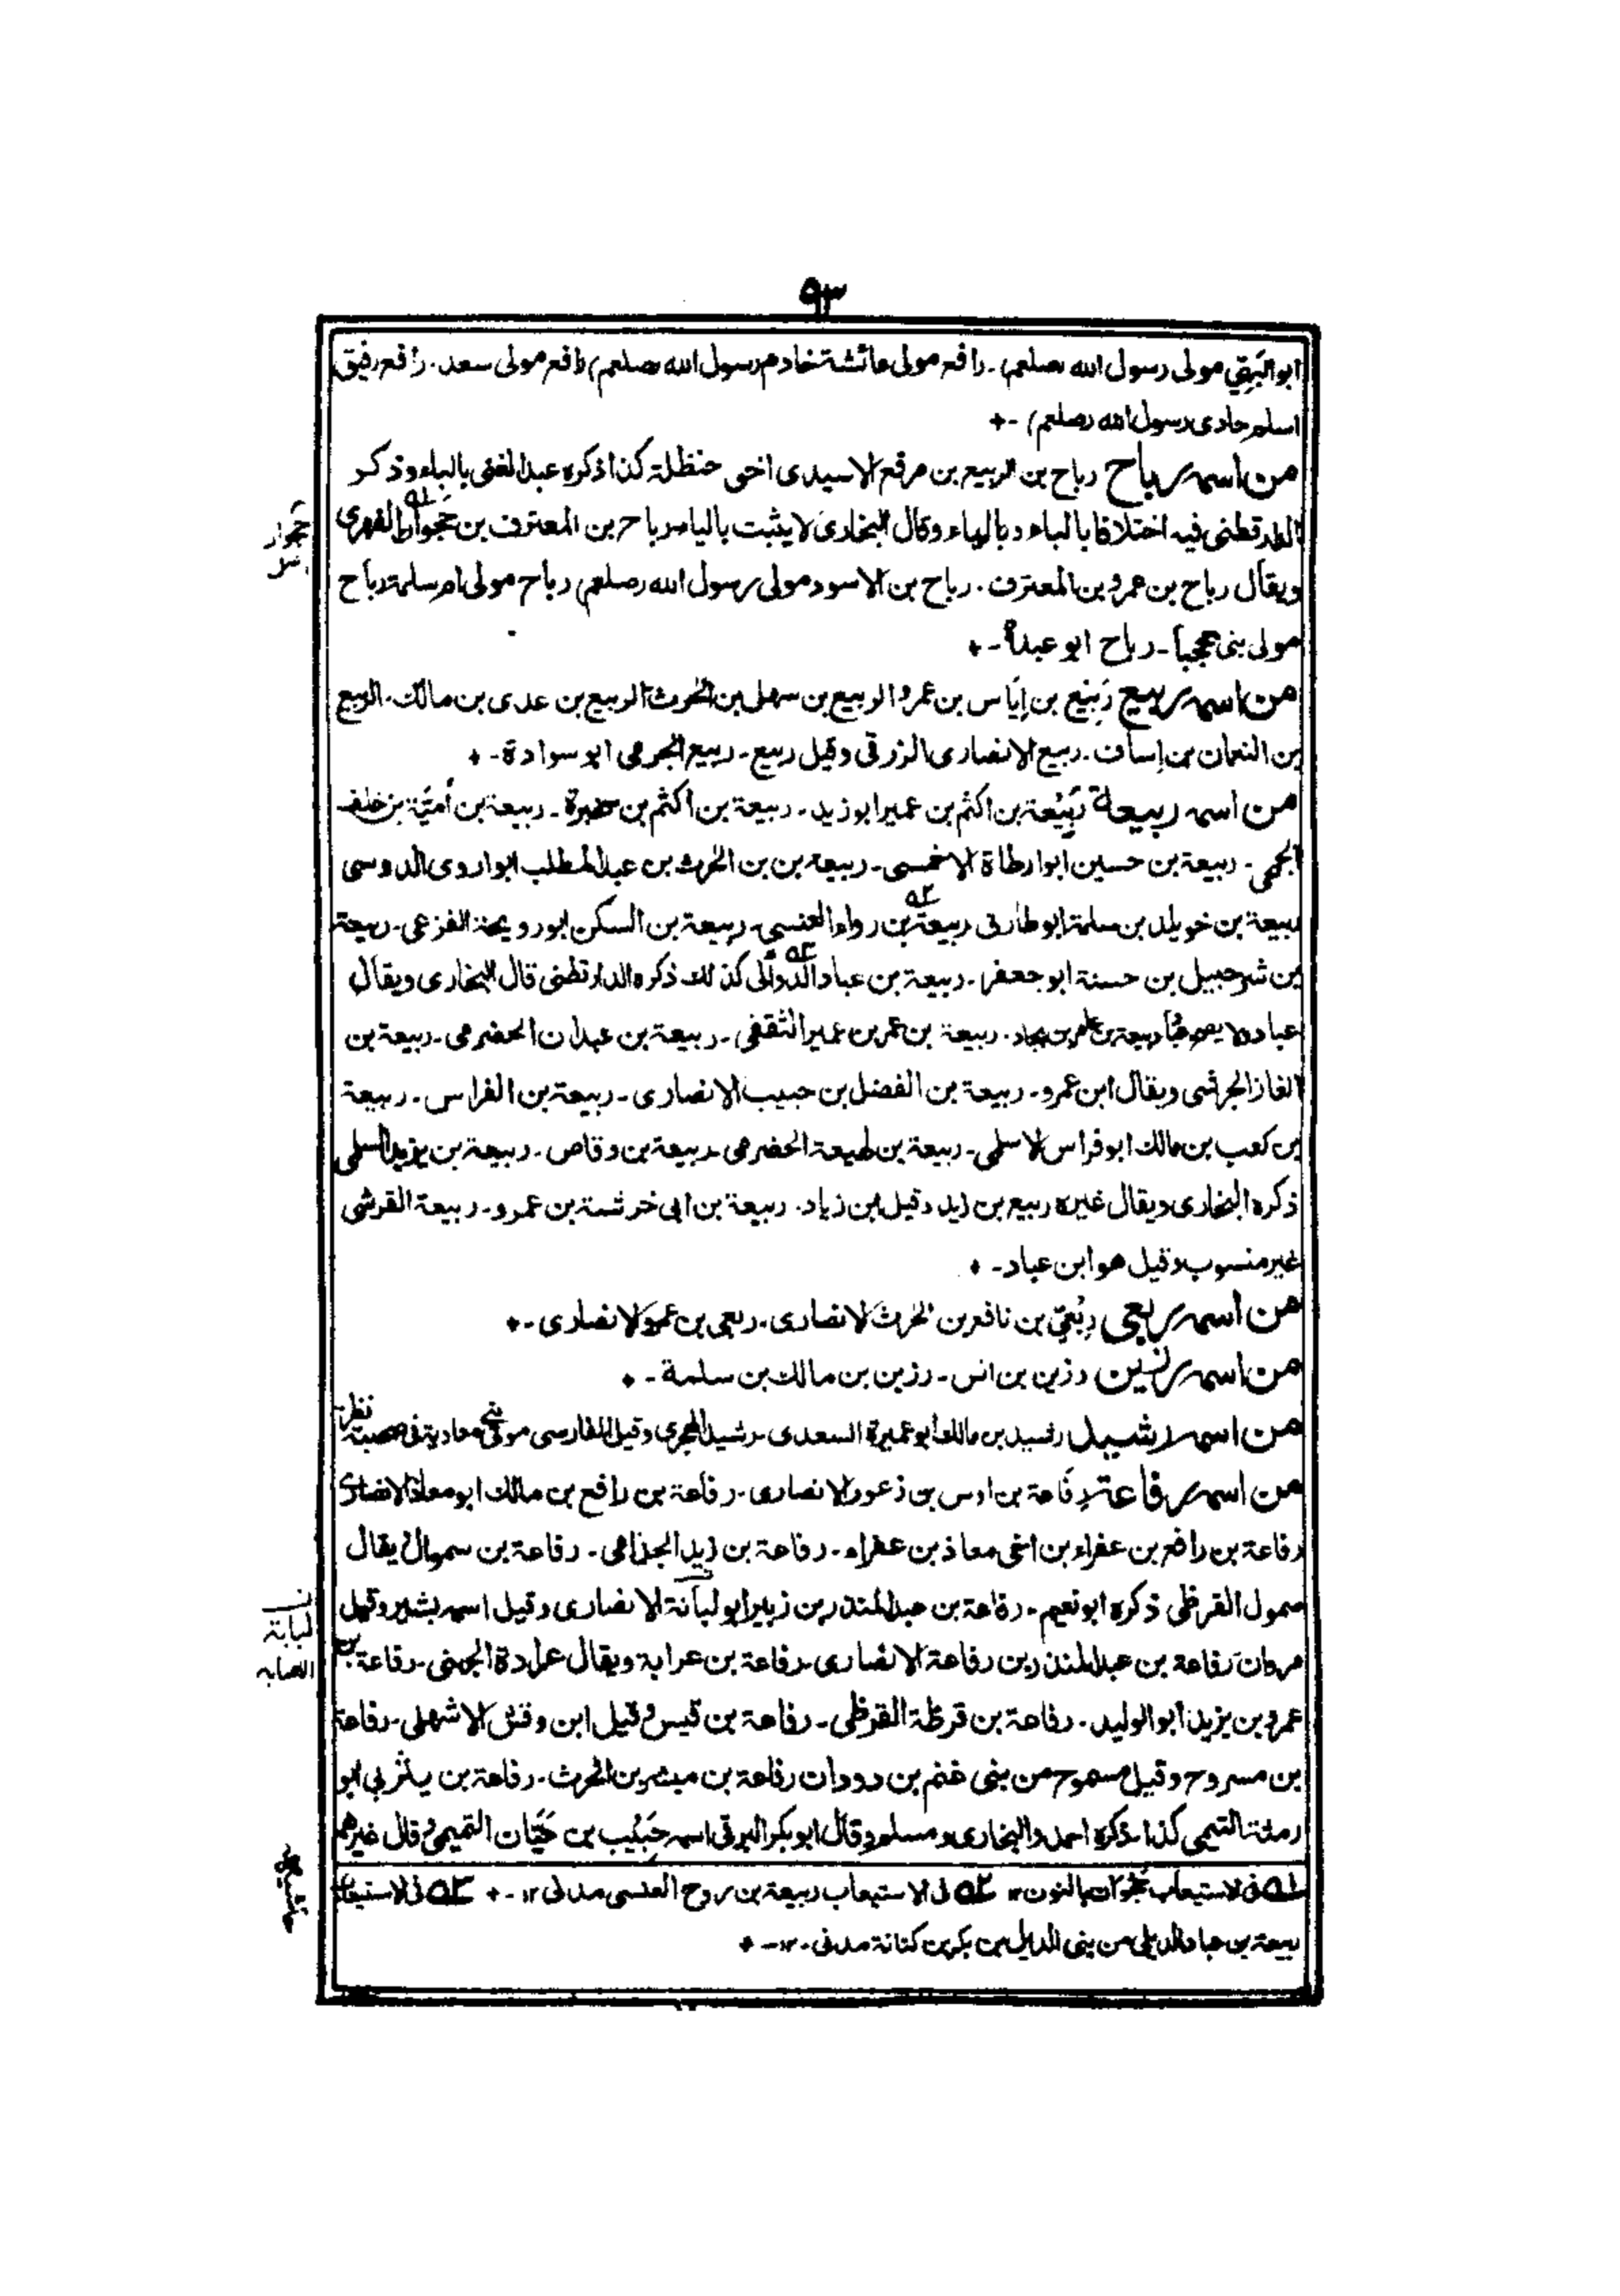 ٩٣
ابوالبهي مولى رسول الله (صلعم)۔ رافع مولى عائشة خادم رسول الله (صلعم) رافع مولى سعد۔ رافع رفيق
اسلم حادى رسول الله (صلعم) ۔
من اسمه رباح رباح بن الربيع بن مرقع الاسيدى اخى حنظلة كذا ذكره عبد الغنى بالباء وذكر
الدارقطنى فيه اختلافا بالباء وبالياء وقال البخارى لا يثبت بالياء رباح بن المعترف بن حجوان الفهرى
ويقال رباح بن عمرو بن المعترف۔ رباح بن الاسود مولى رسول الله (صلعم) رباح مولى ام سلمة رباح
مولى بنى جحجبا۔ رباح ابو عبدة۔
من اسمه ربيع رَبِيْع بن اِيَاس بن عمرو الربيع بن سهل بن الحرث الربيع بن عدى بن مالك۔ الربيع
بن النعمان بن اِساف۔ ربيع الانصارى الزرقى وقيل ربيع۔ ربيع الجرمى ابو سوادة۔
من اسمه ربيعة رَبِيْعة بن اكثم بن عمير ابو زيد۔ ربيعة بن اكثم بن سخبرة۔ ربيعة بن اُميّة بن خلف
الجمحى۔ ربيعة بن حسين ابو ارطاة الاحمسى۔ ربيعة بن بن الحرث بن عبد المطلب ابو اروى الدوسى
ربيعة بن خويلد بن سلمة ابو طارق ربيعة بن رواء العنسى۔ ربيعة بن السكن ابو رويحة الفزعى۔ ربيعة
بن شرحبيل بن حسنة ابو جعفر۔ ربيعة بن عباد الدؤلى كذلك ذكره الدارقطنى قال البخارى ويقال
عباد ولا يصح ربيعة بن عامر بن بجاد۔ ربيعة بن عمر بن عمير الثقفى۔ ربيعة بن عبدان الحضرمى۔ ربيعة بن
الغاز الجرشى ويقال ابن عمرو۔ ربيعة بن الفضل بن حبيب الانصارى۔ ربيعة بن الفراس۔ ربيعة
بن كعب بن مالك ابو فراس الاسلمى۔ ربيعة بن لهيعة الحضرمى۔ ربيعة بن وقاص۔ ربيعة بن يزيد السلمى
ذكره البخارى ويقال غيره ربيع بن زيد وقيل ابن زياد۔ ربيعة بن ابى خرشة بن عمرو۔ ربيعة القرشى
غير منسوب وقيل هو ابن عباد۔
من اسمه ربعى رِبْعيّ بن نافع بن الحرث الانصارى۔ ربعى بن عمرو الانصارى۔
من اسمه رزين رزين بن انس۔ رزين بن مالك بن سلمة۔
من اسمه رشيد رشيد بن مالك ابو عميرة السعدى۔ رشيد الهجرى وقيل الفارسى مولى بنى معاوية فى صحبته نظر
من اسمه رفاعة رِفَاعة بن اوس بن زعورا الانصارى۔ رفاعة بن رافع بن مالك ابو معاذ الانصارى
رفاعة بن رافع بن عفراء بن اخى معاذ بن عفراء۔ رفاعة بن زيد الجذامى۔ رفاعة بن سموال ويقال
سمول القرظى ذكره ابو نعيم۔ رفاعة بن عبد المنذر بن زبير ابو لبابة الانصارى وقيل اسمه بشير وقيل
مروان رفاعة بن عبد المنذر بن رفاعة الانصارى۔ رفاعة بن عرابة ويقال عرادة الجهنى۔ رفاعة بن
عمرو بن يزيد ابو الوليد۔ رفاعة بن قرظة القرظى۔ رفاعة بن قيس وقيل ابن وقش الاشهلى۔ رفاعة
بن مسروح وقيل مسموح من بنى غنم بن دودان رفاعة بن مبشر بن الحرث۔ رفاعة بن يثربى ابو
رمثة التيمى كذا ذكره احمد والبخارى ومسلم وقال ابو بكر البرقى اسمه حَبِيْب بن حَيَّان التميمى وقال غيرهم
١ فى الاستيعاب حجوان بالنون ١٢ ٢ فى الاستيعاب ربيعة بن روح العنسى مدنى ١٢۔ ٣ فى الاستيعاب
ربيعة بن عباد الديلى من بنى الديل بن بكر بن كنانة مدنى۔ ١٢۔
حَجوان
لبابة
الصحابه
حاشية